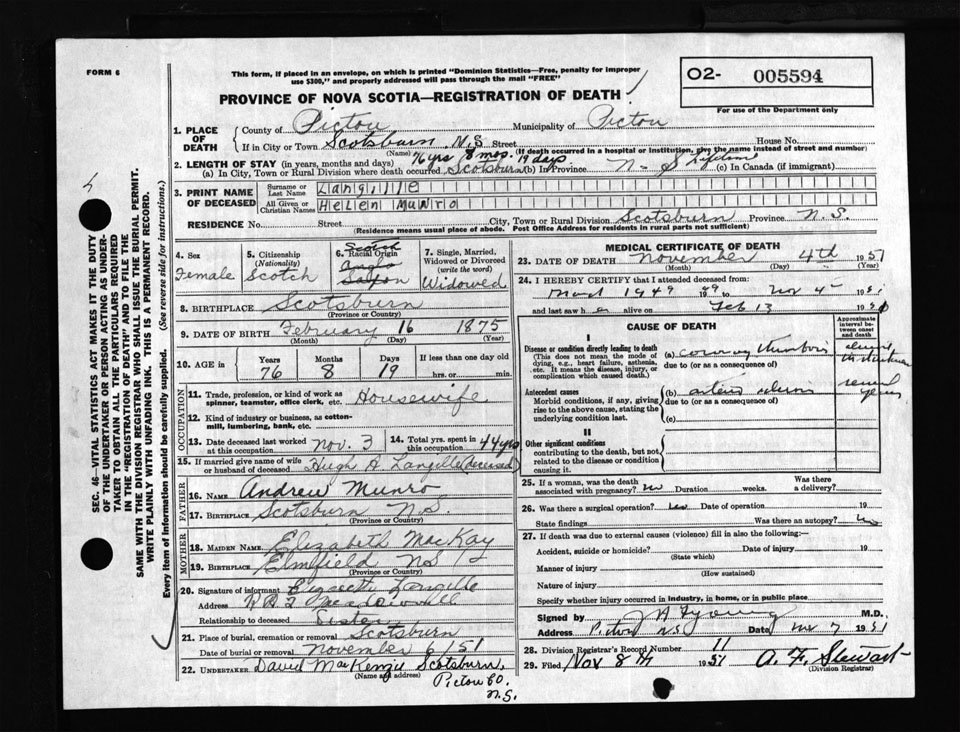 FORM 6
This form, if placed in an envelope, on which is printed "Dominion Statistics—Free, penalty for improper
use $300," and properly addressed will pass through the mail "FREE"
O2- 005594
For use of the Department only
PROVINCE OF NOVA SCOTIA—REGISTRATION OF DEATH
1. PLACE OF DEATH
County of Pictou Municipality of Pictou
If in City or Town Scotsburn N.S. Street House No.
(Name) (If death occurred in a hospital or institution, give the name instead of street and number)
76 yrs 8 mos. 19 days
2. LENGTH OF STAY (in years, months and days)
(a) In City, Town or Rural Division where death occurred Scotsburn (b) In Province N-S Lifetime (c) In Canada (if immigrant)
3. PRINT NAME OF DECEASED
Surname or Last Name Langille
All Given or Christian Names Helen Munro
RESIDENCE No. Street City, Town or Rural Division Scotsburn Province N.S.
(Residence means usual place of abode. Post Office Address for residents in rural parts not sufficient)
4. Sex Female
5. Citizenship (Nationality) Scotch
6. Racial Origin Scotch Anglo Saxon
7. Single, Married, Widowed or Divorced (write the word) Widowed
8. BIRTHPLACE Scotsburn
(Province or Country)
9. DATE OF BIRTH February 16 1875
(Month) (Day) (Year)
10. AGE in Years 76 Months 8 Days 19 If less than one day old hrs. or min.
OCCUPATION
11. Trade, profession, or kind of work as spinner, teamster, office clerk, etc. Housewife
12. Kind of industry or business, as cotton-mill, lumbering, bank, etc.
13. Date deceased last worked at this occupation Nov. 3
14. Total yrs. spent in this occupation 44 yrs
15. If married give name of wife or husband of deceased Hugh A. Langille (deceased)
FATHER
16. NAME Andrew Munro
17. BIRTHPLACE Scotsburn N.S.
(Province or Country)
MOTHER
18. MAIDEN NAME Elizabeth MacKay
19. BIRTHPLACE Elmfield N.S
(Province or Country)
20. Signature of informant Langille
Address R R 2 Meadowville
Relationship to deceased Sister
21. Place of burial, cremation or removal Scotsburn
Date of burial or removal November 6/51
22. UNDERTAKER David MacKenzie Scotsburn,
(Name and address)
Pictou Co
N.S.
MEDICAL CERTIFICATE OF DEATH
23. DATE OF DEATH November 4th 1951
(Month) (Day) (Year)
24. I HEREBY CERTIFY that I attended deceased from:
1949 to Nov 4 1951
and last saw her alive on Feb 13 195
CAUSE OF DEATH
Approximate interval between onset and death
Disease or condition directly leading to death
(This does not mean the mode of dying, e.g., heart failure, asthenia, etc. It means the disease, injury, or complication which caused death.)
(a) coronary thrombosis
due to (or as a consequence of)
Antecedent causes
Morbid conditions, if any, giving rise to the above cause, stating the underlying condition last.
(b) several years
due to (or as a consequence of)
(c)
II
Other significant conditions
contributing to the death, but not related to the disease or condition causing it.
25. If a woman, was the death associated with pregnancy? no Duration weeks. Was there a delivery?
26. Was there a surgical operation? no Date of operation 19
State findings Was there an autopsy? no
27. If death was due to external causes (violence) fill in also the following:—
Accident, suicide or homicide? Date of injury 19
(State which)
Manner of injury
(How sustained)
Nature of injury
Specify whether injury occurred in industry, in home, or in public place
Signed by Young M.D.
Address Pictou N.S. Date Nov 7 1951
28. Division Registrar's Record Number 11
29. Filed Nov 8th 1951 A. F. Stewart
(Division Registrar)
SEC. 46—VITAL STATISTICS ACT MAKES IT THE DUTY
OF THE UNDERTAKER OR PERSON ACTING AS UNDER-
TAKER TO OBTAIN ALL THE PARTICULARS REQUIRED
IN THE "REGISTRATION OF DEATH" AND TO FILE THE
SAME WITH THE DIVISION REGISTRAR WHO SHALL ISSUE THE BURIAL PERMIT.
WRITE PLAINLY WITH UNFADING INK. THIS IS A PERMANENT RECORD.
Every item of information should be carefully supplied. (See reverse side for instructions.)